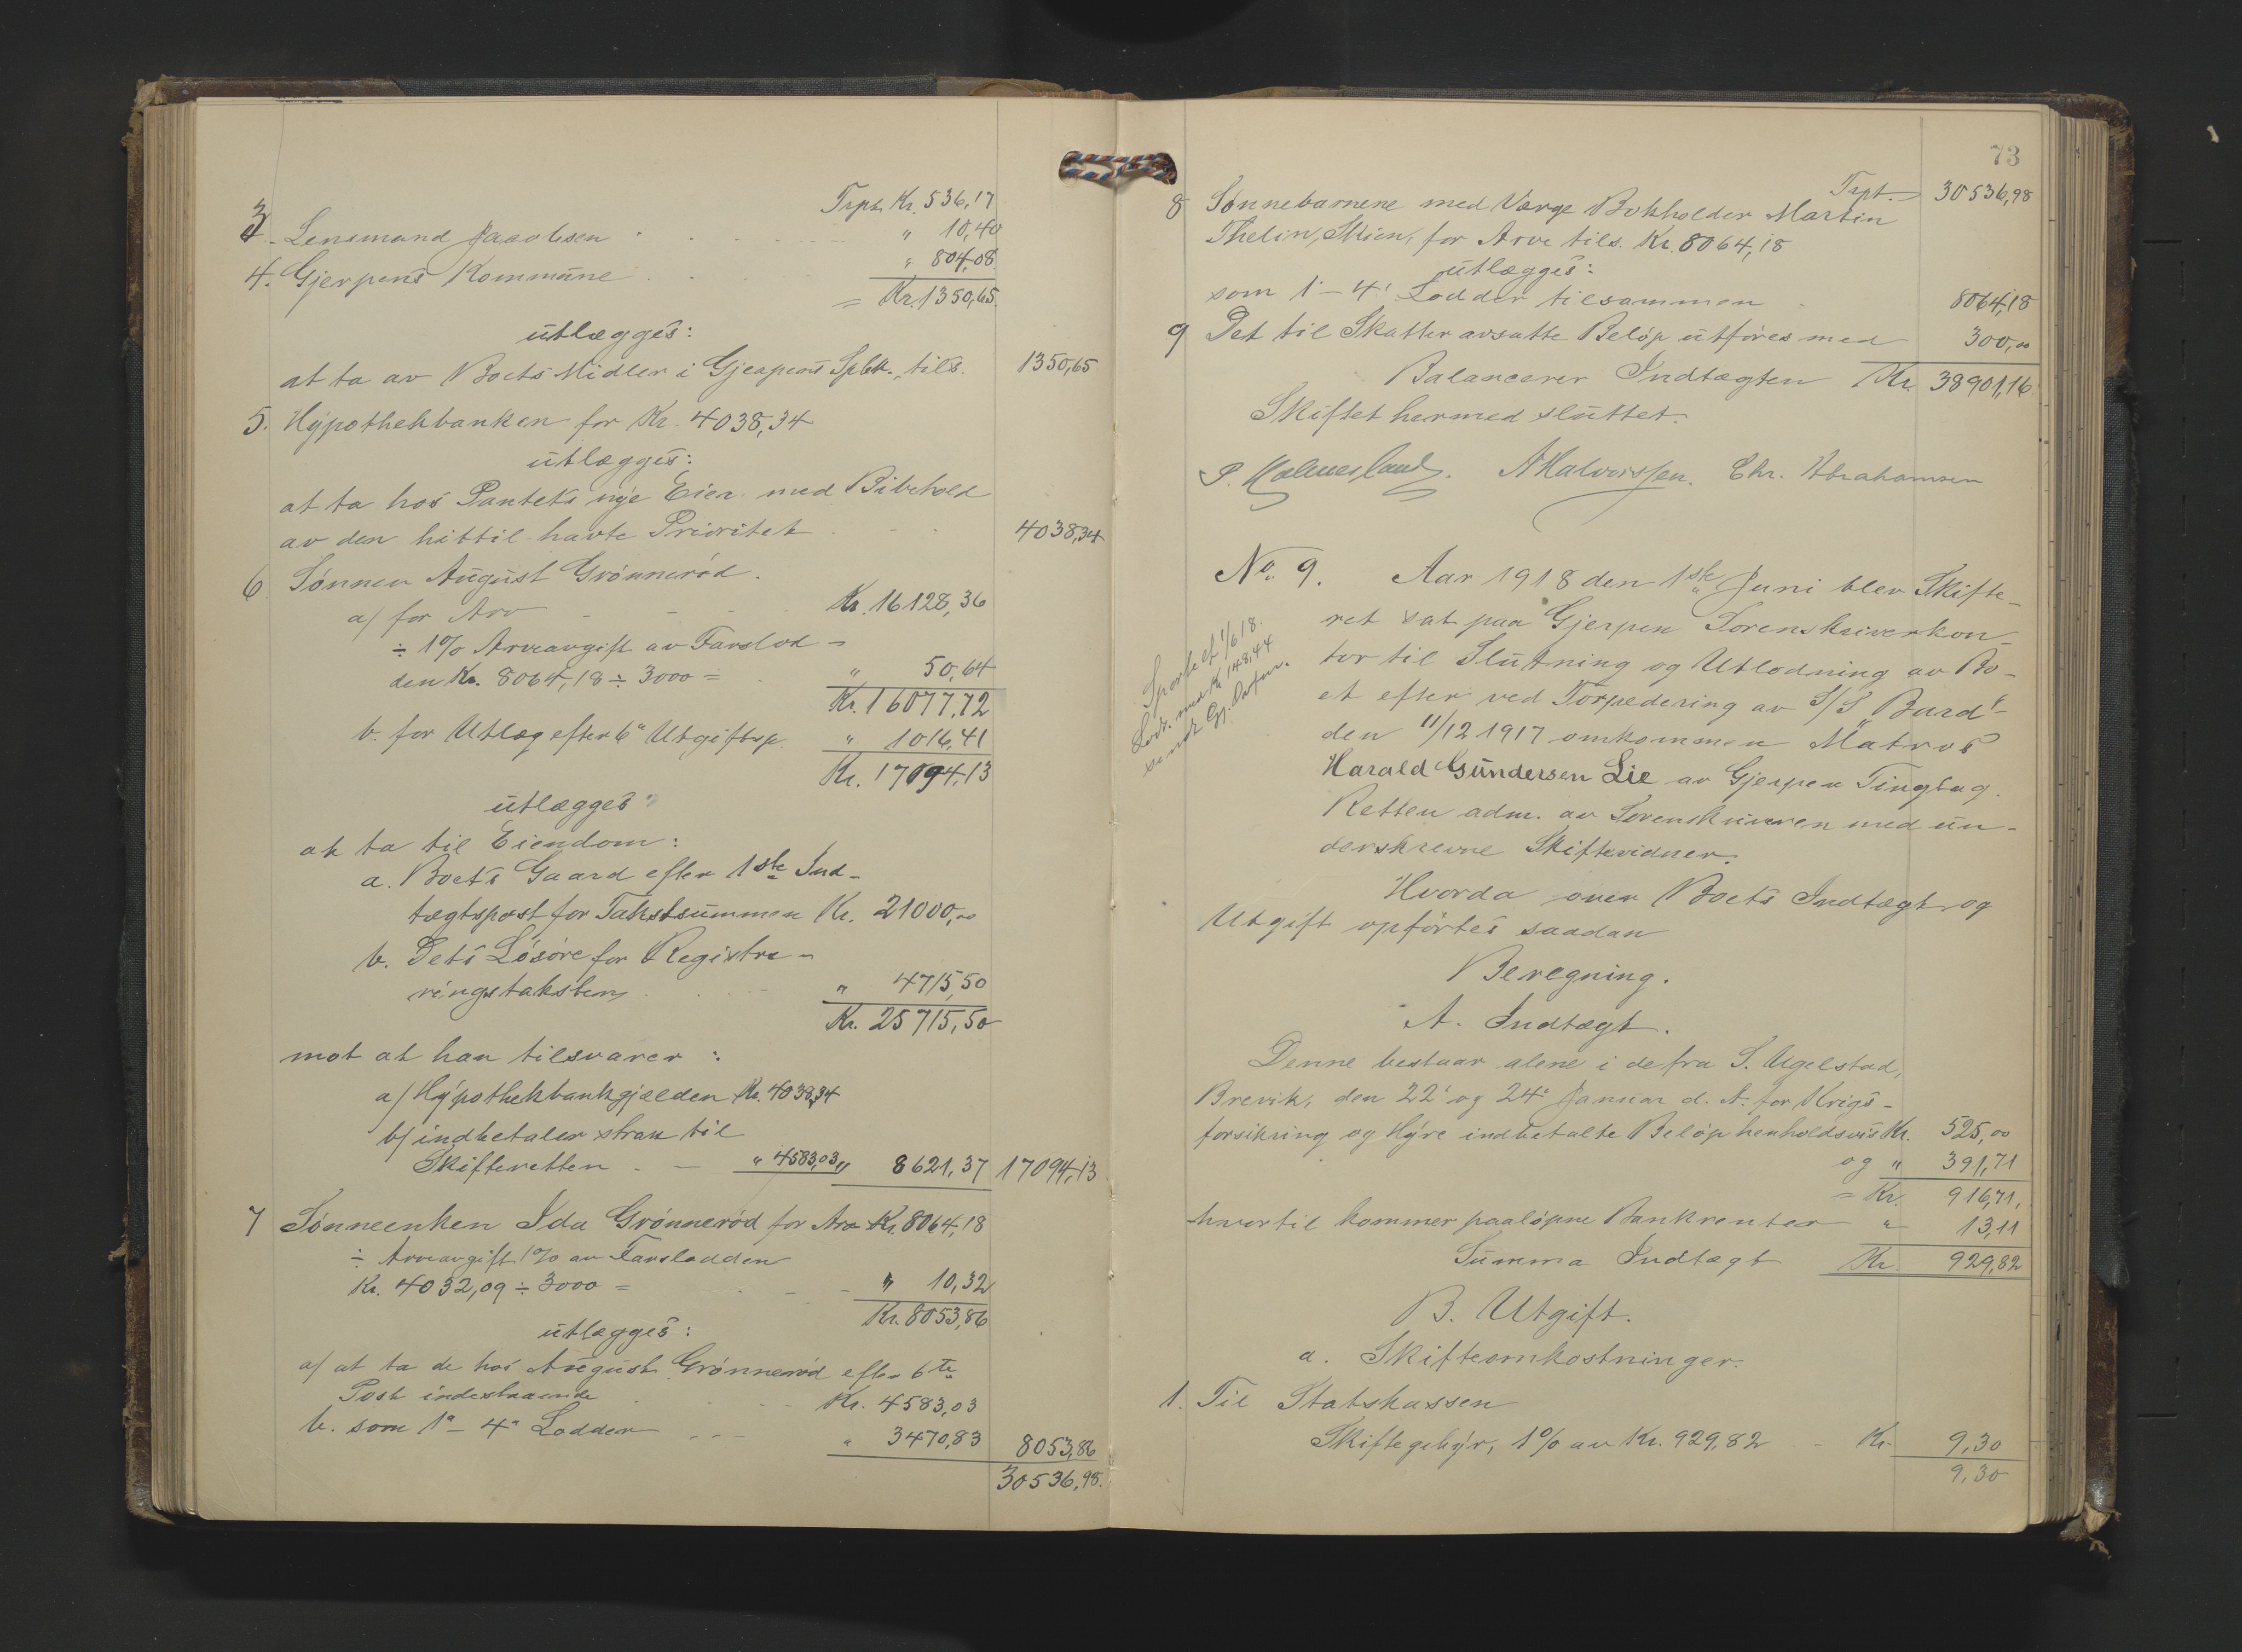 Trpt. Kr. 536,17
3. Lensmand Jacobsen " 10,40
4. Gjerpens Kommune " 804,08
= Kr. 1350,65
utlægges:
at ta av Boets Midler i Gjerpens Spbk., tils. 1350,65
5. Hypothekbanken for Kr. 4038,34
utlægges:
at ta hos Pantets nye Eier med Bibehold
av den hittil havte Prioritet 4038,34
6 Sønnen August Grønnerød.
a/ for Arv Kr. 16128,36
÷ 1% Arveavgift av Farslod-
den Kr. 8064,18 ÷ 3000 = " 50,64
Kr. 16077,72
b. for Utlæg efter 6" Utgiftsp. " 1016,41
Kr. 17094,13
utlægges:
at ta til Eiendom:
a. Boets Gaard efter 1ste Ind-
tægtspost for Takstsummen Kr. 21000,00
b. Dets Løsøre for Registre-
ringstaksten " 4715,50
Kr. 25715,50
mot at han tilsvarer:
a/ Hypothekbankgjælden Kr. 4038,34
b/ indbetaler strax til
Skifteretten " 4583,03 " 8621,37 17094,13
7 Sønneenken Ida Grønnerød for Arv Kr. 8064,18
÷ Arveavgift 1% av Farslodden
Kr. 4032,09 ÷ 3000 = " 10,32
Kr. 8053,86
utlægges:
a/ at ta de hos August Grønnerød efter 6te
Post indestaaende Kr. 4583,03
b. som 1" - 4" Lodder " 3470,83 8053,86
30536,98.
73
Trpt. 30536,98
8 Sønnebarnene med Værge Bokholder Martin
Thelin, Skien, for Arv tils. Kr. 8064,18
utlægges:
som 1' - 4' Lodder tilsammen 8064,18
9 Det til Skatter avsatte Beløp utføres med 300,00
Balancerer Indtægten Kr. 38901,16
Skiftet hermed sluttet.
P. Kolmesland. A Halvorssen. Chr. Abrahamsen
No. 9. Aar 1918 den 1ste Juni blev Skifte-
ret sat paa Gjerpen Sorenskriverkon-
tor til Slutning og Utlodning av Bo-
et efter ved Torpedering av S/S "Burd"
den 11/12 1917 omkommen Matros
Harald Gundersen Lie av Gjerpen Tinglag.
Retten adm. av Sorenskriveren med un-
derskrevne Skiftevidner.
1/6 18.
med Kr 148,44
sendt Gj.
Hvorda over Boets Indtægt og
Utgift opførtes saadan
Beregning.
A. Indtægt.
Denne bestaar alene i de fra S. Ugelstad,
Brevik, den 22' og 24' Januar d. A. for Krigs-
forsikring og Hyre indbetalte Beløp henholdsvis Kr. 525,00
og " 391,71
= Kr. 916,71,
hvortil kommer paaløpne Bankrenter " 13,11
Summa Indtægt Kr. 929,82
B. Utgift.
a. Skifteomkostninger.
1. Til Statskassen
Skiftegebyr, 1% av Kr. 929,82 - Kr. 9,30
9,30